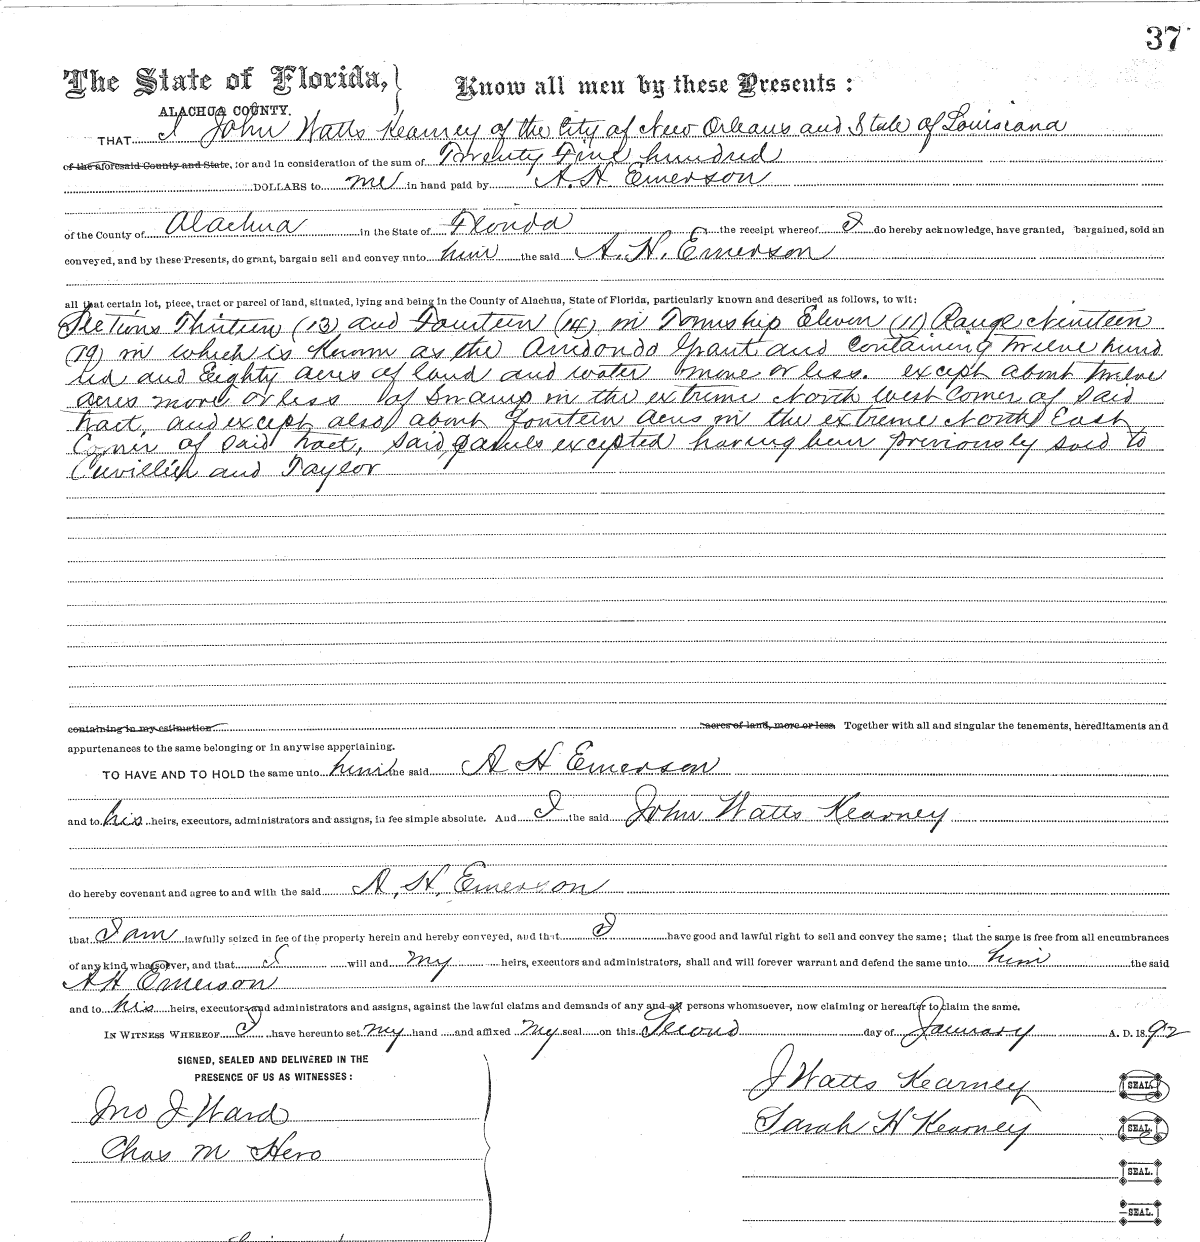 37
The State of Florida, Know all men by these Presents :
ALACHUA COUNTY.
THAT I John Watts Kearney of the City of New Orleans and State of Louisiana
of the aforesaid County and State, for and in consideration of the sum of Twenty Five hundred
DOLLARS to me in hand paid by A. H. Emerson
of the County of Alachua in the State of Florida the receipt whereof I do hereby acknowledge, have granted, bargained, sold an
conveyed, and by these Presents, do grant, bargain sell and convey unto him the said A. H. Emerson
all that certain lot, piece, tract or parcel of land, situated, lying and being in the County of Alachua, State of Florida, particularly known and described as follows, to wit:
Sections Thirteen (13) and Fourteen (14) in Township Eleven (11) Range Nineteen
(19) in which is Known as the Arredondo Grant and Containing Twelve hund
red and Eighty acres of land and water more or less. except about twelve
acres more or less of Swamp in the extreme North West Corner of Said
tract, and except also about Fourteen acres in the extreme North East
Corner of Said tract, Said parcels excepted having been previously sold to
and Taylor
containing in my estimation acres of land, more or less Together with all and singular the tenements, hereditaments and
appurtenances to the same belonging or in anywise appertaining.
TO HAVE AND TO HOLD the same unto him the said A H Emerson
and to his heirs, executors, administrators and assigns, in fee simple absolute. And I the said John Watts Kearney
do hereby covenant and agree to and with the said A. H. Emerson
that I am lawfully seized in fee of the property herein and hereby conveyed, and that I have good and lawful right to sell and convey the same; that the same is free from all encumbrances
of any kind whatsoever, and that I will and my heirs, executors and administrators, shall and will forever warrant and defend the same unto him the said
A H Emerson
and to his heirs, executors and administrators and assigns, against the lawful claims and demands of any and all persons whomsoever, now claiming or hereafter to claim the same.
IN WITNESS WHEREOF I have hereunto set my hand and affixed my seal on this Second day of January A. D. 1892
SIGNED, SEALED AND DELIVERED IN THE
PRESENCE OF US AS WITNESSES :
J Watts Kearney SEAL.
Jno J Ward
Sarah H Kearney SEAL.
Chas M Hero
SEAL.
SEAL.